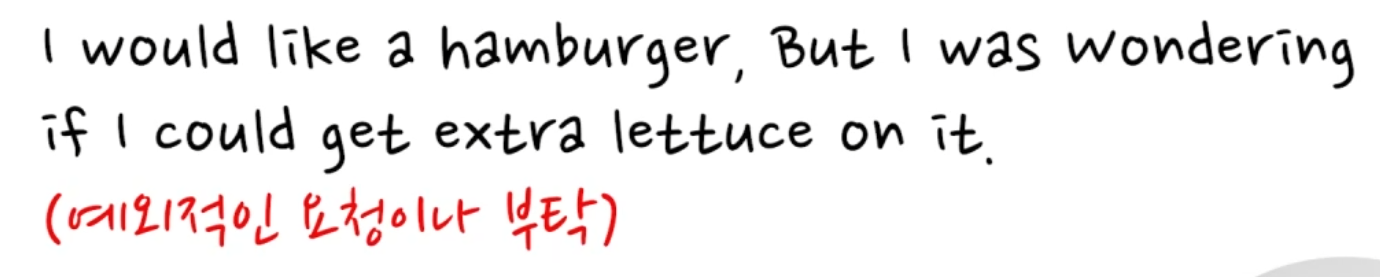 I would like a hamburger, But I was wondering
if I could get extra lettuce on it.
(예외적인 요청이나 부탁)